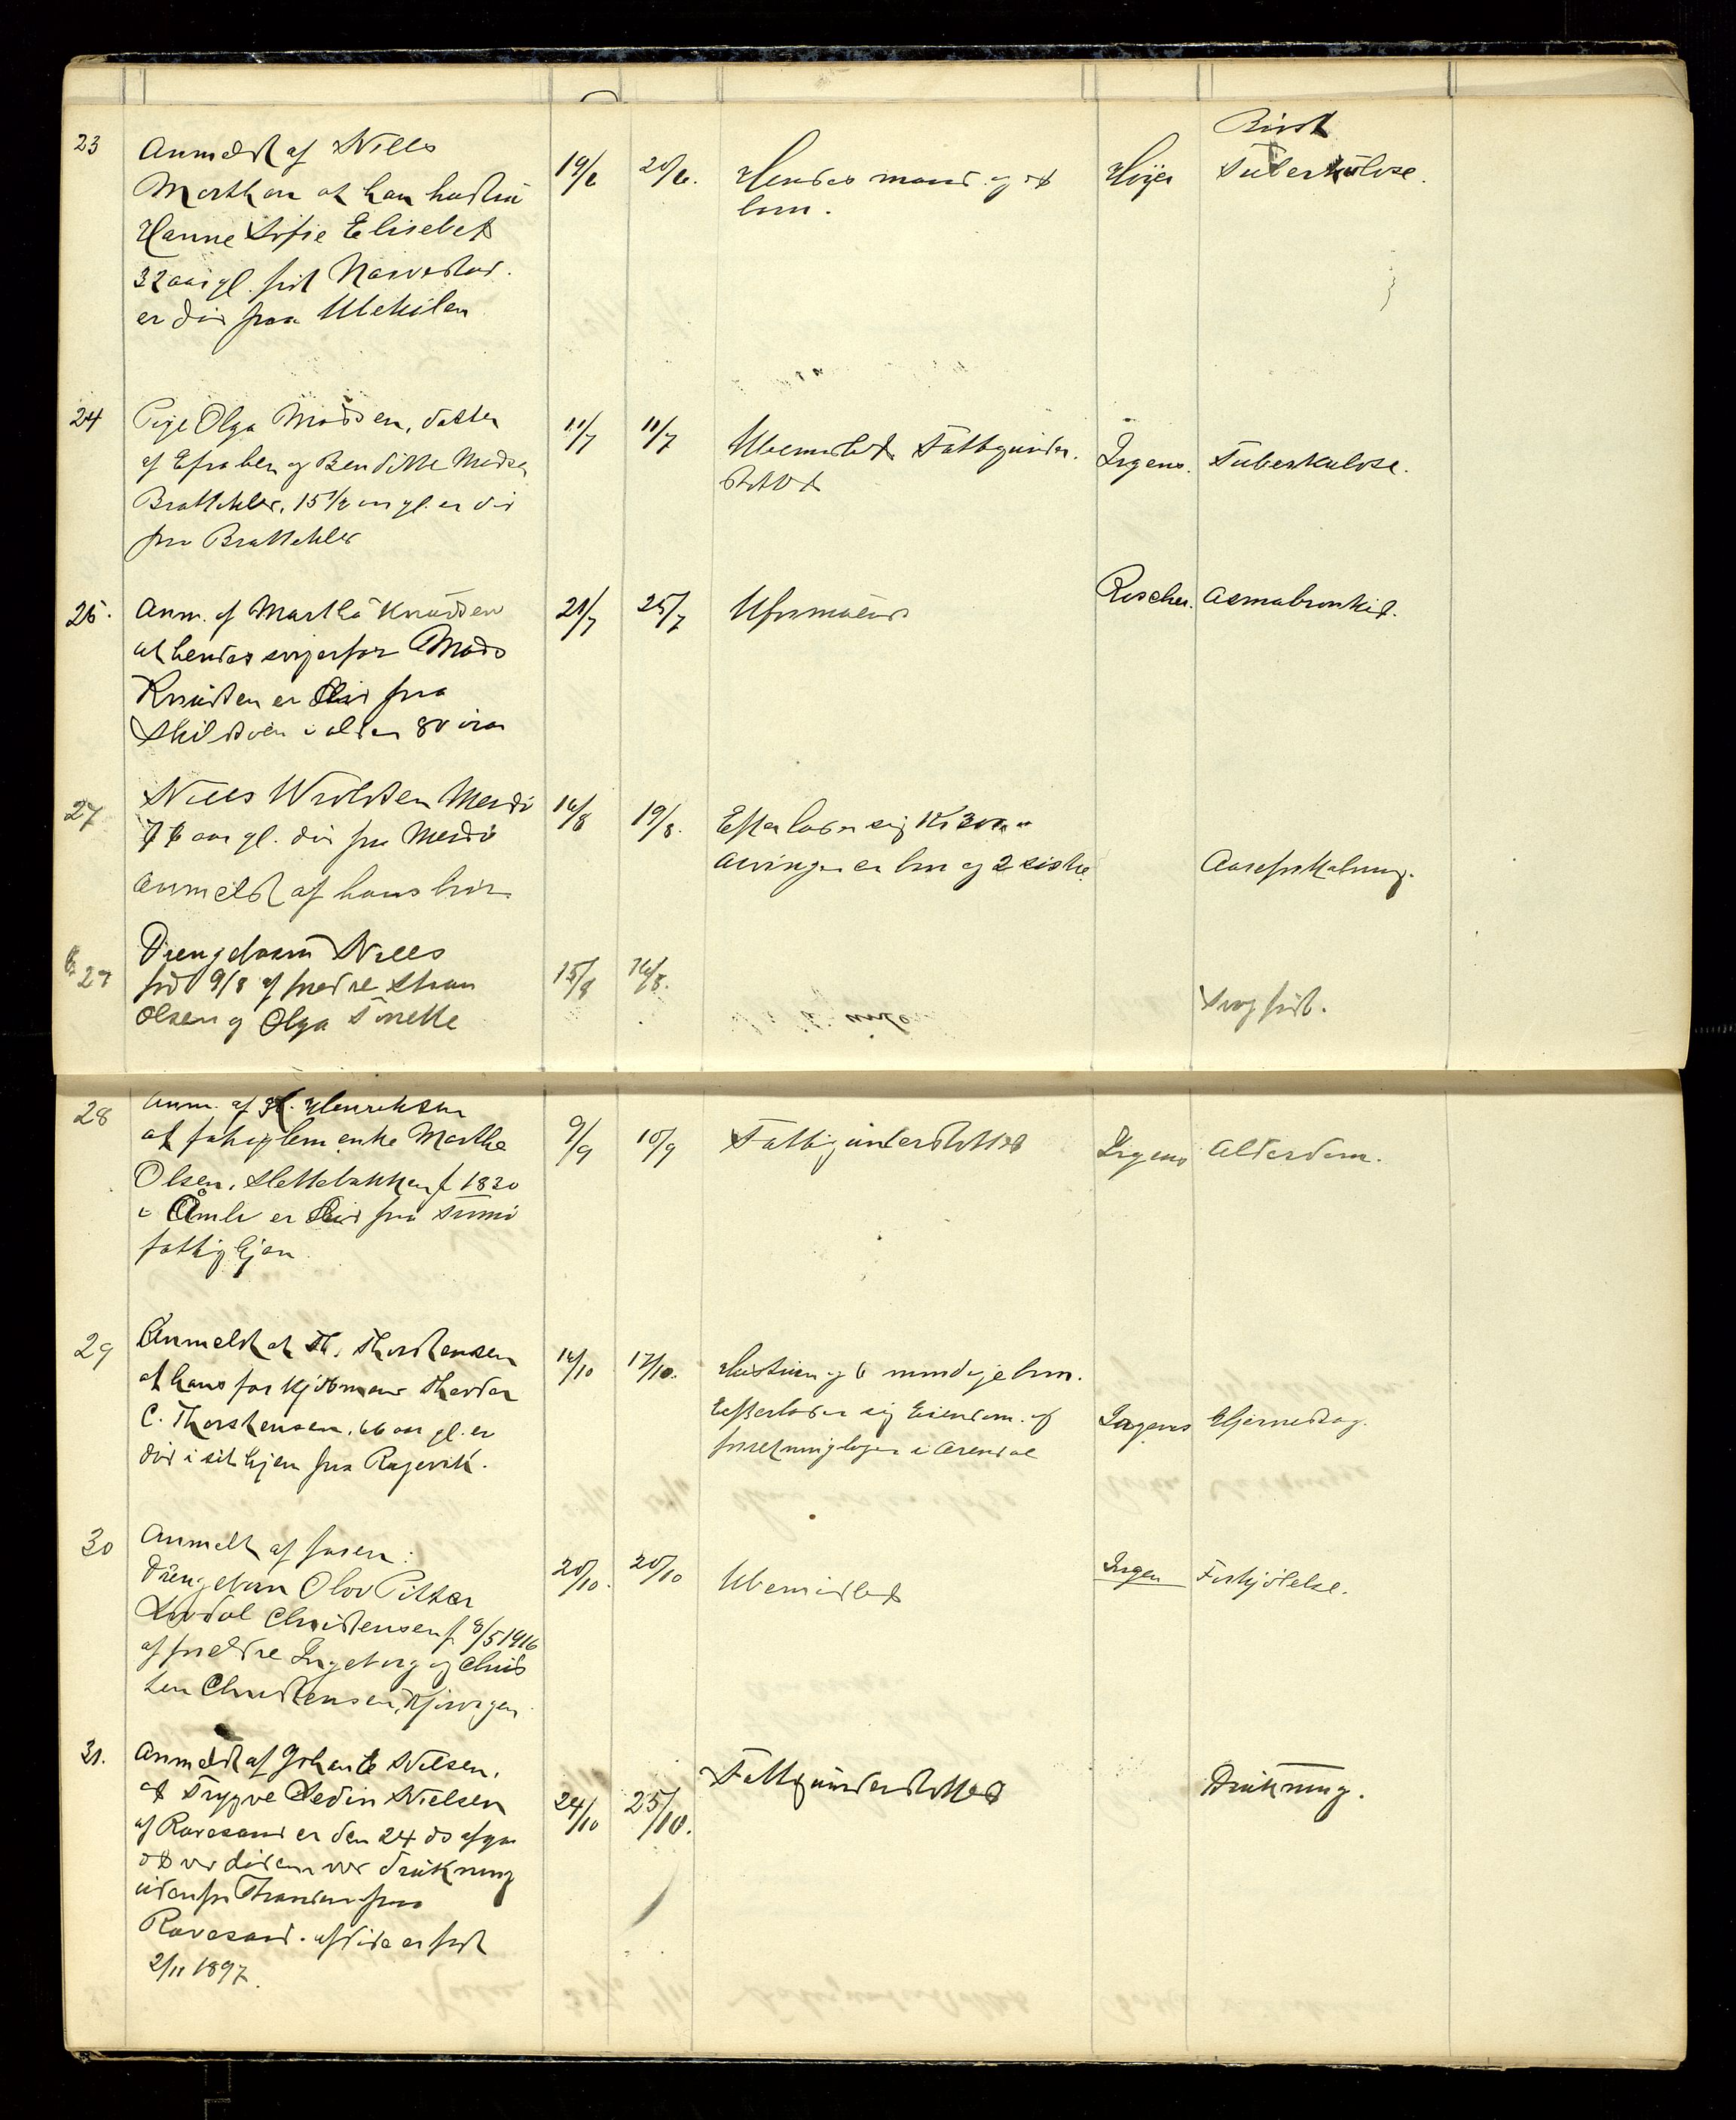 23
Anmeldt af Niels
at han hustru
Hanne Sofie Elisebet
32 aar gl. født
er død fra Utekilen
19/6 20/6.
Hendes mand og et
barn.
Høyer
Brist
Tuberkulose.
24
Pige Olga Madsen, datter
af Efraben og Benditte Madsen
Brattekler, 15 1/2 aar gl. er død
fra Brattekler
11/7 11/7
Ubemidlet Fattigunder.
støttet
Irgens. Tuberkulose.
25.
Anm. af Martha Knudsen
at hendes svigerfar Mads
Knudsen er død fra
i alder 80 aar
21/7 25/7
Uformuend
Roscher. Asmabronkit.
27
Niels Wroldsen Merdø
76 aar gl. død fra Merdø
anmeldt af hans bror
16/8 19/8.
Efterlader sig Kr 300
arvinger er bror og 2 søstre
27
Drengebarn Niels
født 9/8 af foreldre
Olsen og Olga Tonette
15/8 16/8.
Svag født.
28
Anm. af H. Henriksen
at fattiglem enke Marthe
Olsen, Slettebakken f 1830
i Åmli er død fra Tromø
fattighjem
9/9 10/9
Fattigunderstøttet
Irgens Alderdom.
29
Anmeldt at Th. Thorstensen
at hans far Kjøbmand Theodor
C. Thorstensen, 66 aar gl. er
død i sit hjem fra Ragevik.
16/10 17/10.
Hustru og 6 myndige barn.
Efterlader sig Eiendom og
forretninglager i Arendal
Irgens Hjerneslag.
30
Anmeldt af faren:
Drengebarn Olov Pitter
Christensen f. 8/5 1916
af foreldre Ingeborg og Chris
ten Christensen,
20/10. 20/10
Ubemidlet
Irgen Forkjølelse.
31.
Anmeldt af Johan E Nilsen,
at Trygve Nielsen
af Revesand er den 24 ds afgaa
et ved døden ved drukning
udenfor Tromøen fra
Revesand. afdøde er født
2/11 1897.
24/10 25/10.
Fattigunderstøttet
Drukning.